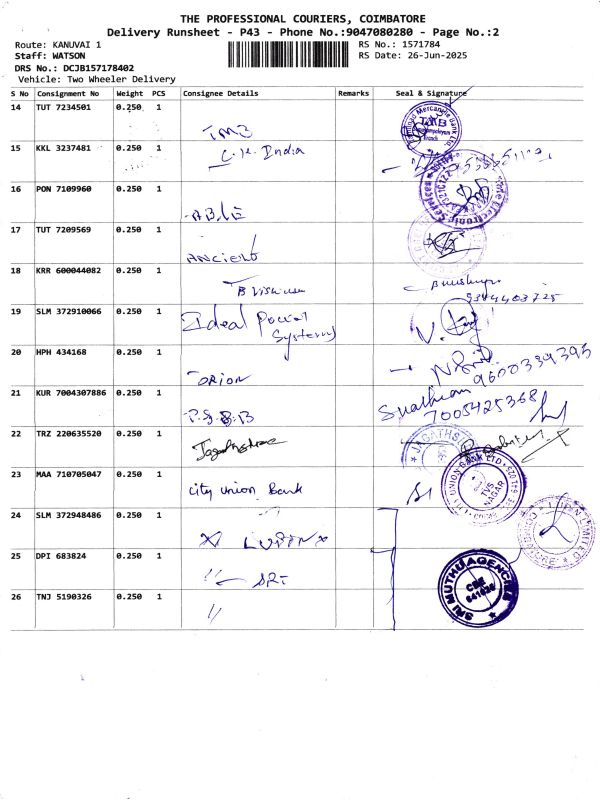 THE PROFESSIONAL COURIERS, COIMBATORE
Delivery Runsheet - P43 - Phone No.:9047080280 - Page No.:2
Route: KANUVAI 1
RS No.: 1571784
Staff: WATSON
RS Date: 26-Jun-2025
DRS No.: DCJB157178402
Vehicle: Two Wheeler Delivery
S No Consignment No Weight PCS Consignee Details Remarks Seal & Signature
14 TUT 7234501 0.250 1
TMB
15 KKL 3237481 0.250 1
India
16 PON 7109960 0.250 1
ABLE
17 TUT 7209569 0.250 1
18 KRR 600044082 0.250 1
9344403725
19 SLM 372910066 0.250 1 Ideal Power
Systems
20 HPH 434168 0.250 1
ORION
9600339395
21 KUR 7004307886 0.250 1
7005425368
22 TRZ 220635520 0.250 1
23 MAA 710705047 0.250 1
City Union Bank
UNION BANK LTD
TVS
NAGAR
24 SLM 372948486 0.250 1
LUPIN
LUPIN LIMITED
25 DPI 683824 0.250 1
"
SRI MUTHU AGENCIES
CBE
26 TNJ 5190326 0.250 1
"